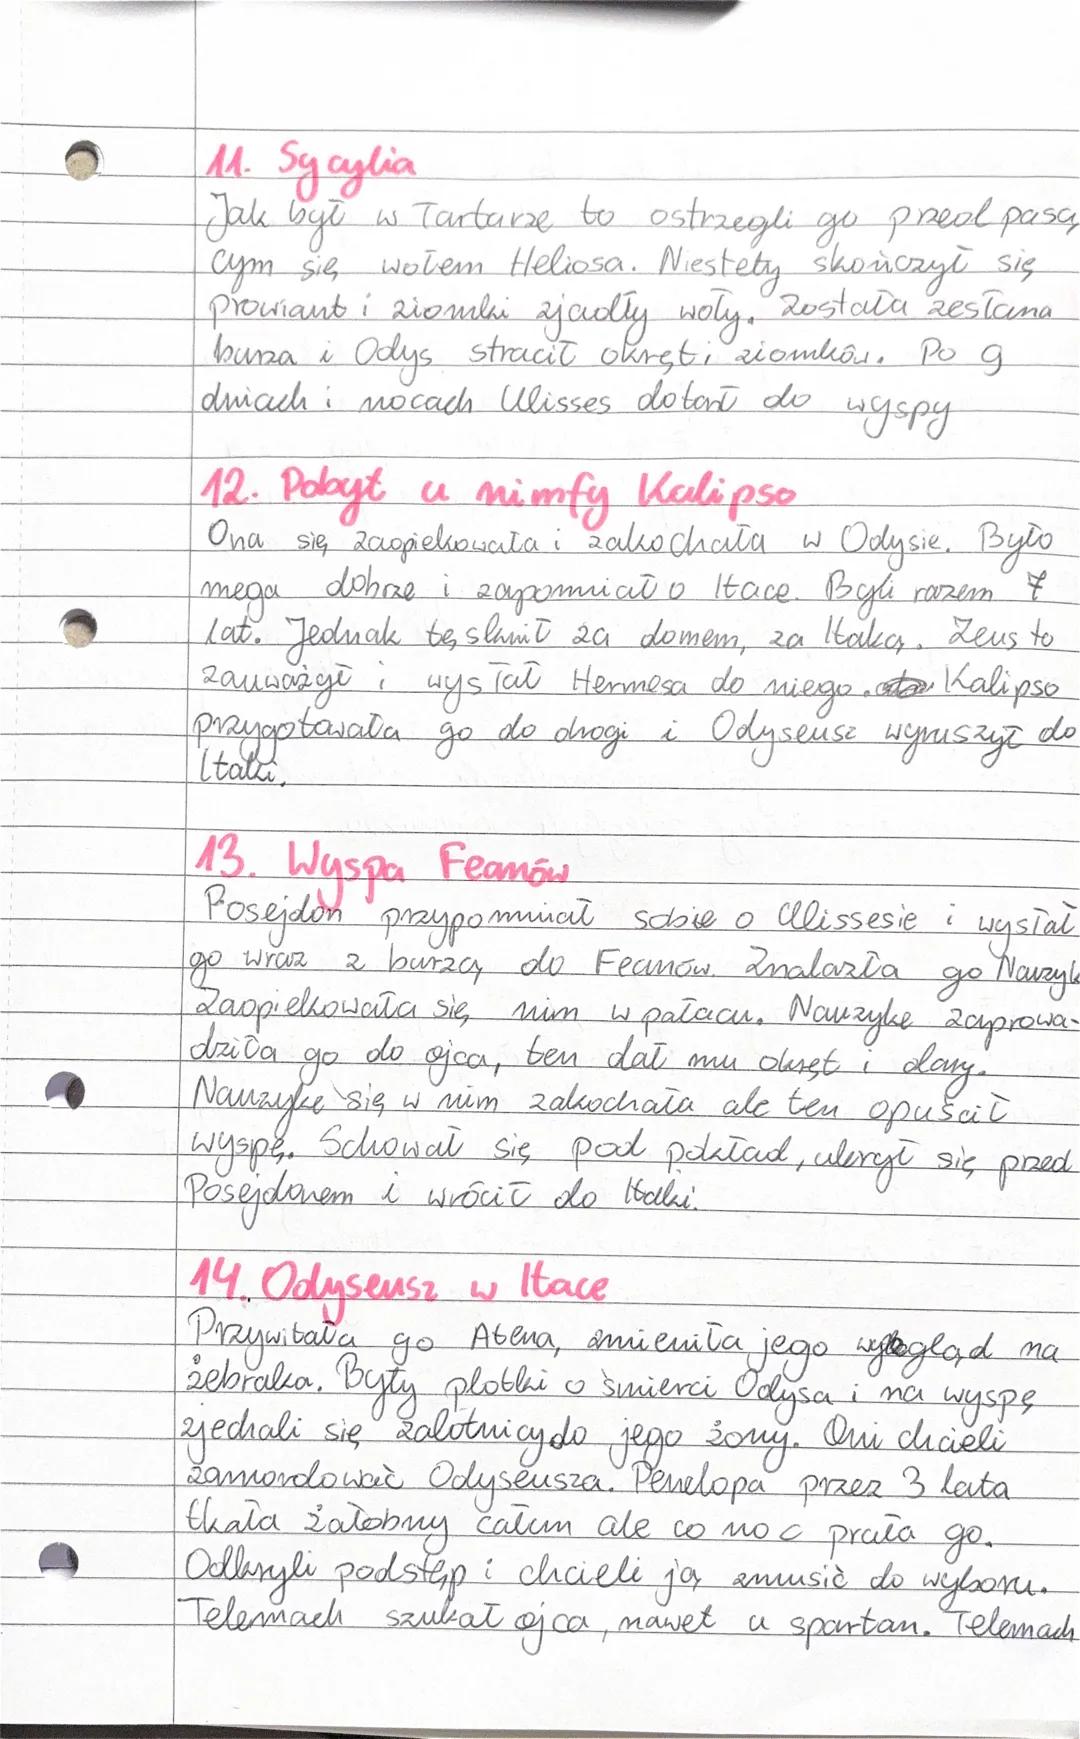 11. Sycylia
Jak był w Tartarze to ostrzegli go przed pasą
cym się wołem Heliosa. Niestety skończył się
prowiant i ziomki zjadły woły. Została zesłana
burza i Odys stracił okręt i ziomków. Po 9
dniach i nocach Ulisses dotarł do wyspy
12. Pobyt u nimfy Kalipso
Ona się zaopiekowała i zakochała w Odysie. Było
mega dobrze i zapomniał o Itace. Byli razem 7
lat. Jednak tęsknił za domem, za Itaką. Zeus to
zauważył i wysłał Hermesa do niego. Kalipso
przygotowała go do drogi i Odyseusz wyruszył do
Itaki.
13. Wyspa Feanów
Posejdon przypomniał sobie o Ulissesie i wysłał
go wraz z burzą do Feanów. Znalazła go Nauzyk
Zaopiekowała się nim w pałacu. Nauzyke zaprowa-
dziła go do ojca, ten dał mu okręt i dary.
Nauzyke się w nim zakochała ale ten opuścił
wyspę. Schował się pod pokład, ukrył się przed
Posejdonem i wrócił do Itaki.
14. Odyseusz w Itace
Przywitała go Atena, zmieniła jego wygląd na
żebraka. Były plotki o śmierci Odysa i na wyspę
zjechali się zalotnicy do jego żony. Oni chcieli
zamordować Odyseusza. Penelopa przez 3 lata
tkała żałobny całun ale co noc pruła go.
Odkryli podstęp i chcieli ją zmusić do wyboru.
Telemach szukał ojca, nawet u spartan. Telemach